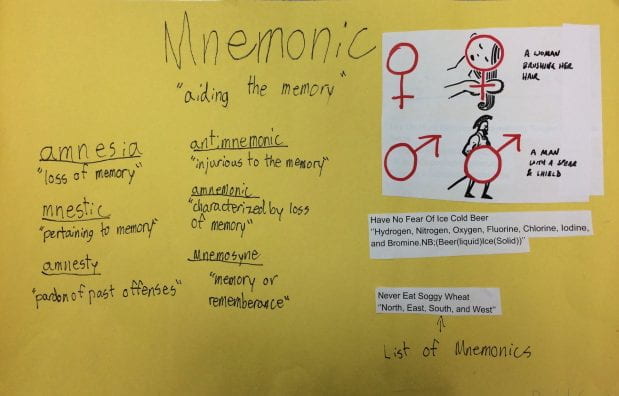 Mnemonic
"aiding the memory"
amnesia
"loss of memory"
mnestic
"pertaining to memory"
amnesty
"pardon of past offenses"
antimnemonic
"injurious to the memory"
amnemonic
"characterized by loss
of memory"
Mnemosyne
"memory or
rememberance"
A WOMAN
BRUSHING HER
HAIR
A MAN
WITH A SPEAR
& SHIELD
Have No Fear Of Ice Cold Beer
"Hydrogen, Nitrogen, Oxygen, Fluorine, Chlorine, Iodine,
and Bromine.NB:(Beer(liquid)Ice(Solid))"
Never Eat Soggy Wheat
"North, East, South, and West"
List of Mnemonics